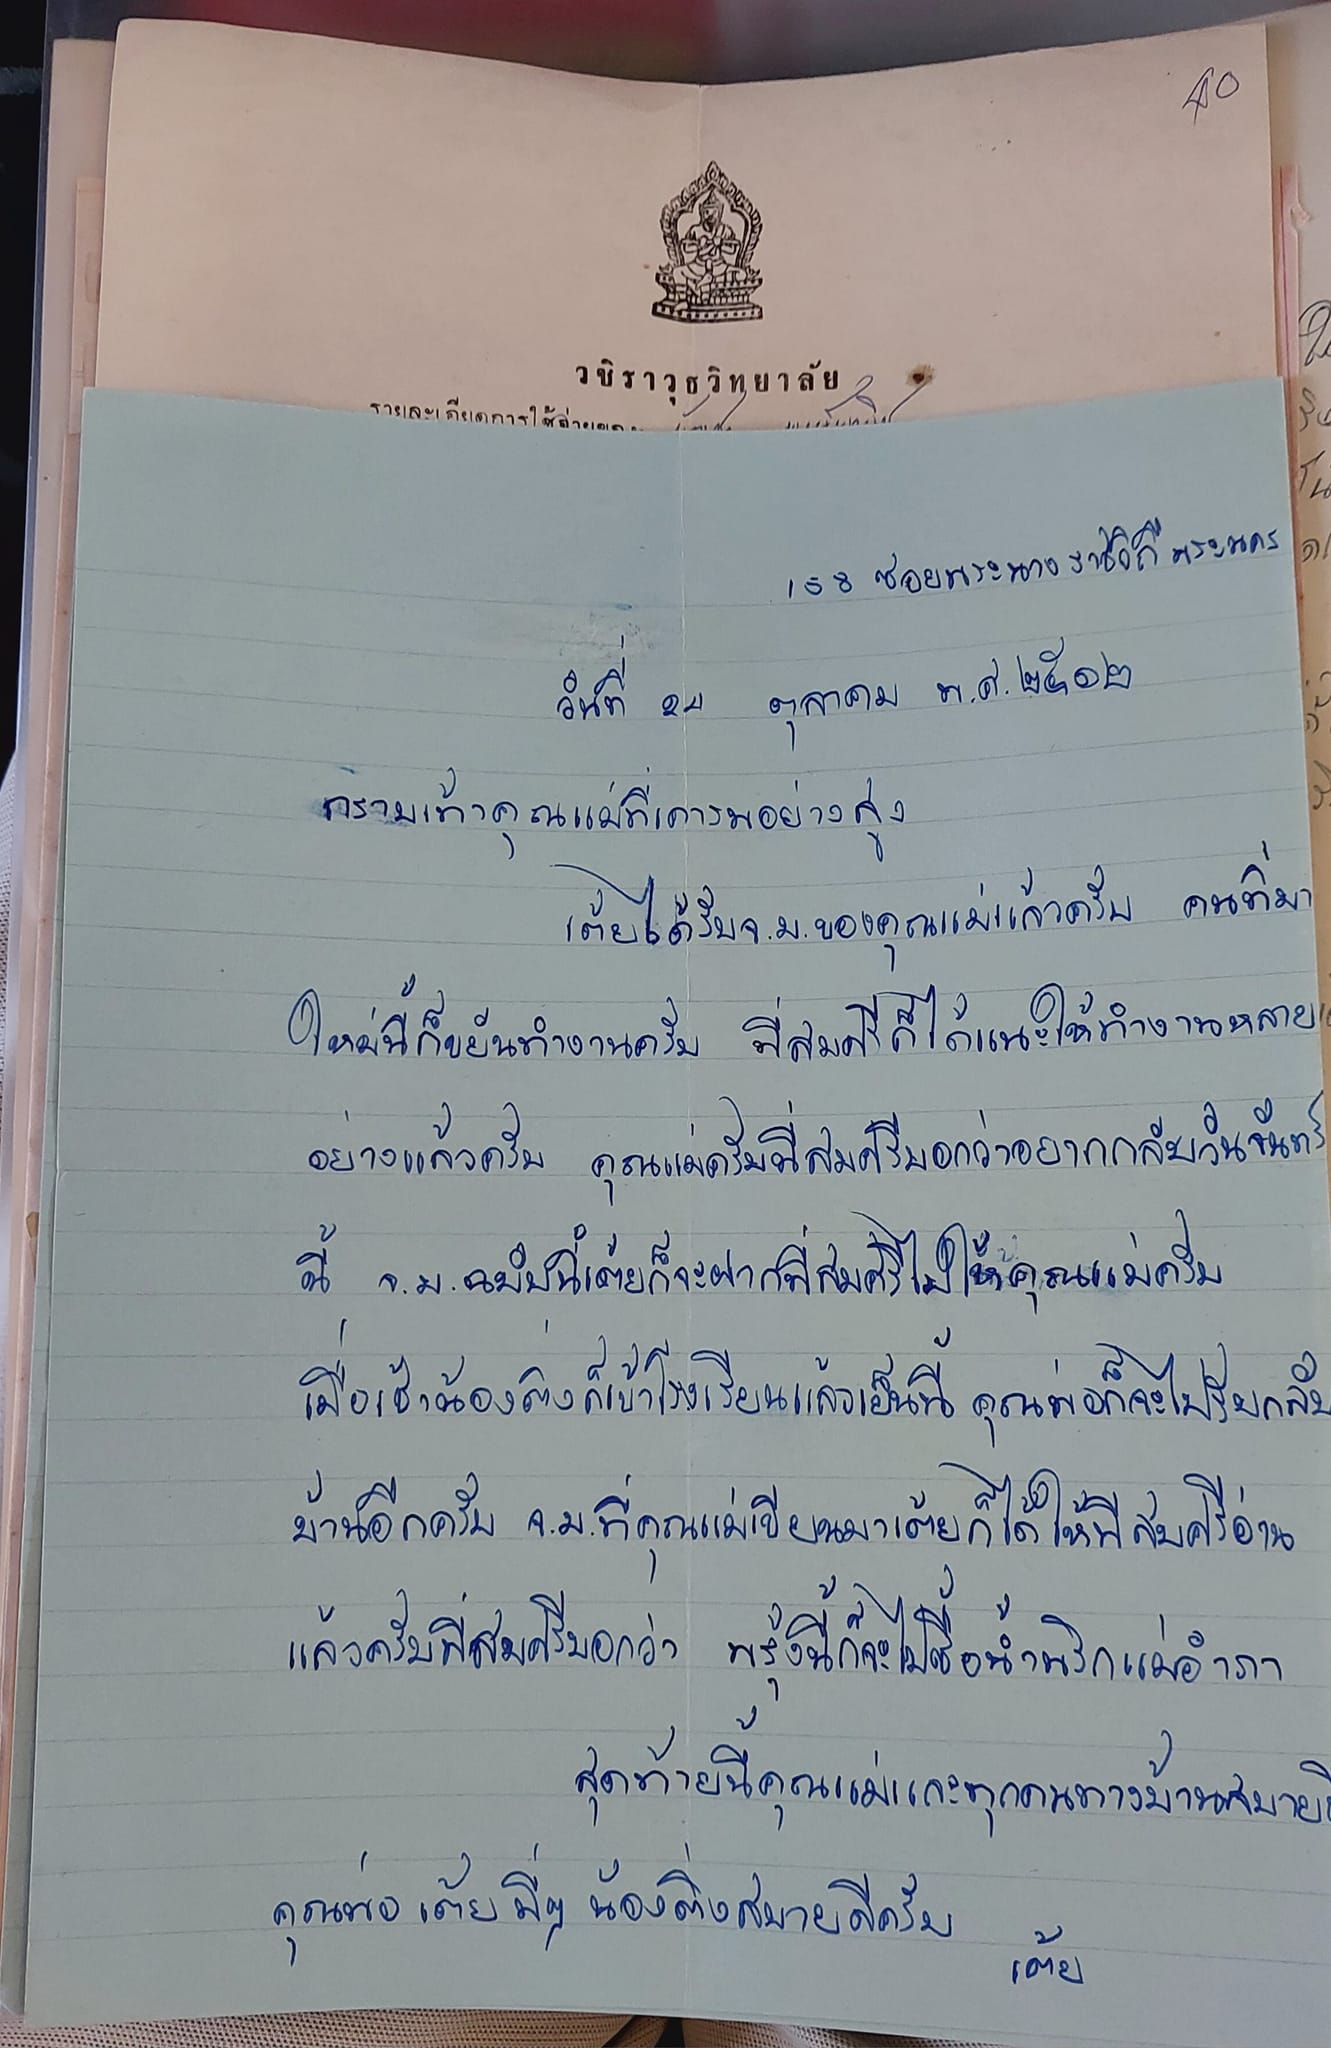 40
วชิราวุธวิทยาลัย
รายละเอียดการใช้จ่ายของ
168 ซอยพระนาง ราชวิถี พระนคร
วันที่ ๒๔ ตุลาคม พ.ศ.๒๕๑๒
กราบเท้าคุณแม่ที่เคารพอย่างสูง
เต้ยได้รับจ.ม.ของคุณแม่แล้วครับ คนที่มา
ใหม่นี้ก็ขยันทำงานครับ พี่สมศรีก็ได้แนะให้ทำงานหลาย
อย่างแล้วครับ คุณแม่ครับพี่สมศรีบอกว่าอยากกลับวันจันทร์
นี้ จ.ม.ฉบับนี้เต้ยก็จะฝากพี่สมศรีไปให้คุณแม่ครับ
เมื่อเช้าน้องติ่งก็เข้าโรงเรียนแล้วเย็นนี้ คุณพ่อก็จะไปรับกลับ
บ้านอีกครับ จ.ม.ที่คุณแม่เขียนมาเต้ยก็ได้ให้พี่สมศรีอ่าน
แล้วครับพี่สมศรีบอกว่า พรุ่งนี้ก็จะไปซื้อน้ำพริกแม่อำภา
สุดท้ายนี้คุณแม่และทุกคนทางบ้านสบายดี
คุณพ่อ เต้ย พี่ๆ น้องติ่งสบายดีครับ
เต้ย